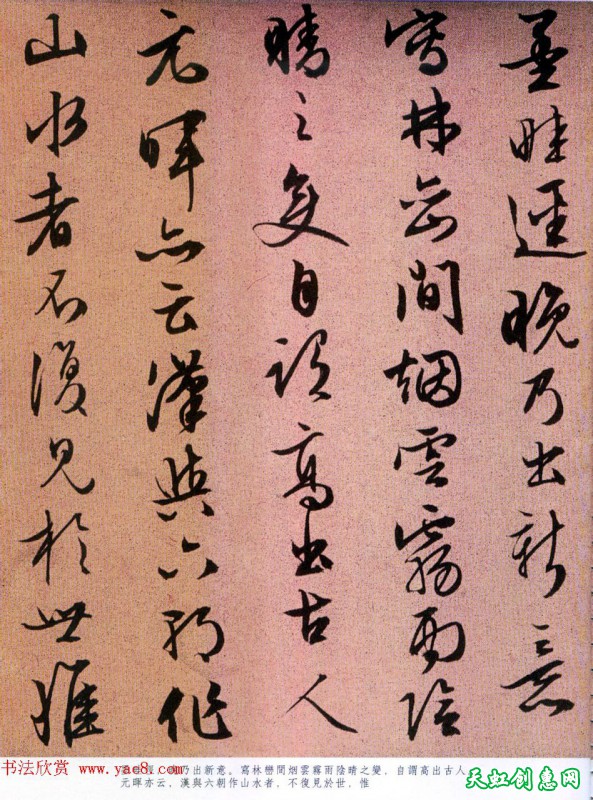 畫蹊逕晚乃出新意
寫林巒間烟雲霧雨陰
晴之變自謂高出古人
元暉亦云漢與六朝作
山水者不復見於世惟
乃出新意。寫林巒間烟雲霧雨陰晴之變，自謂高出古人
元暉亦云，漢與六朝作山水者，不復見於世，惟
书法欣赏 www.yac8.com
天虹创意网